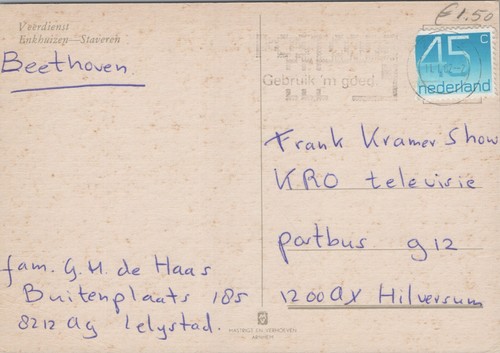 € 1.50
Veerdienst
Enkhuizen—Staveren
Beethoven
45 c
nederland
Gebruik 'm goed
Frank Kramer Show
KRO televisie
postbus 912
1200 AX Hilversum
fam. G.H. de Haas
Buitenplaats 185
8212 AG Lelystad.